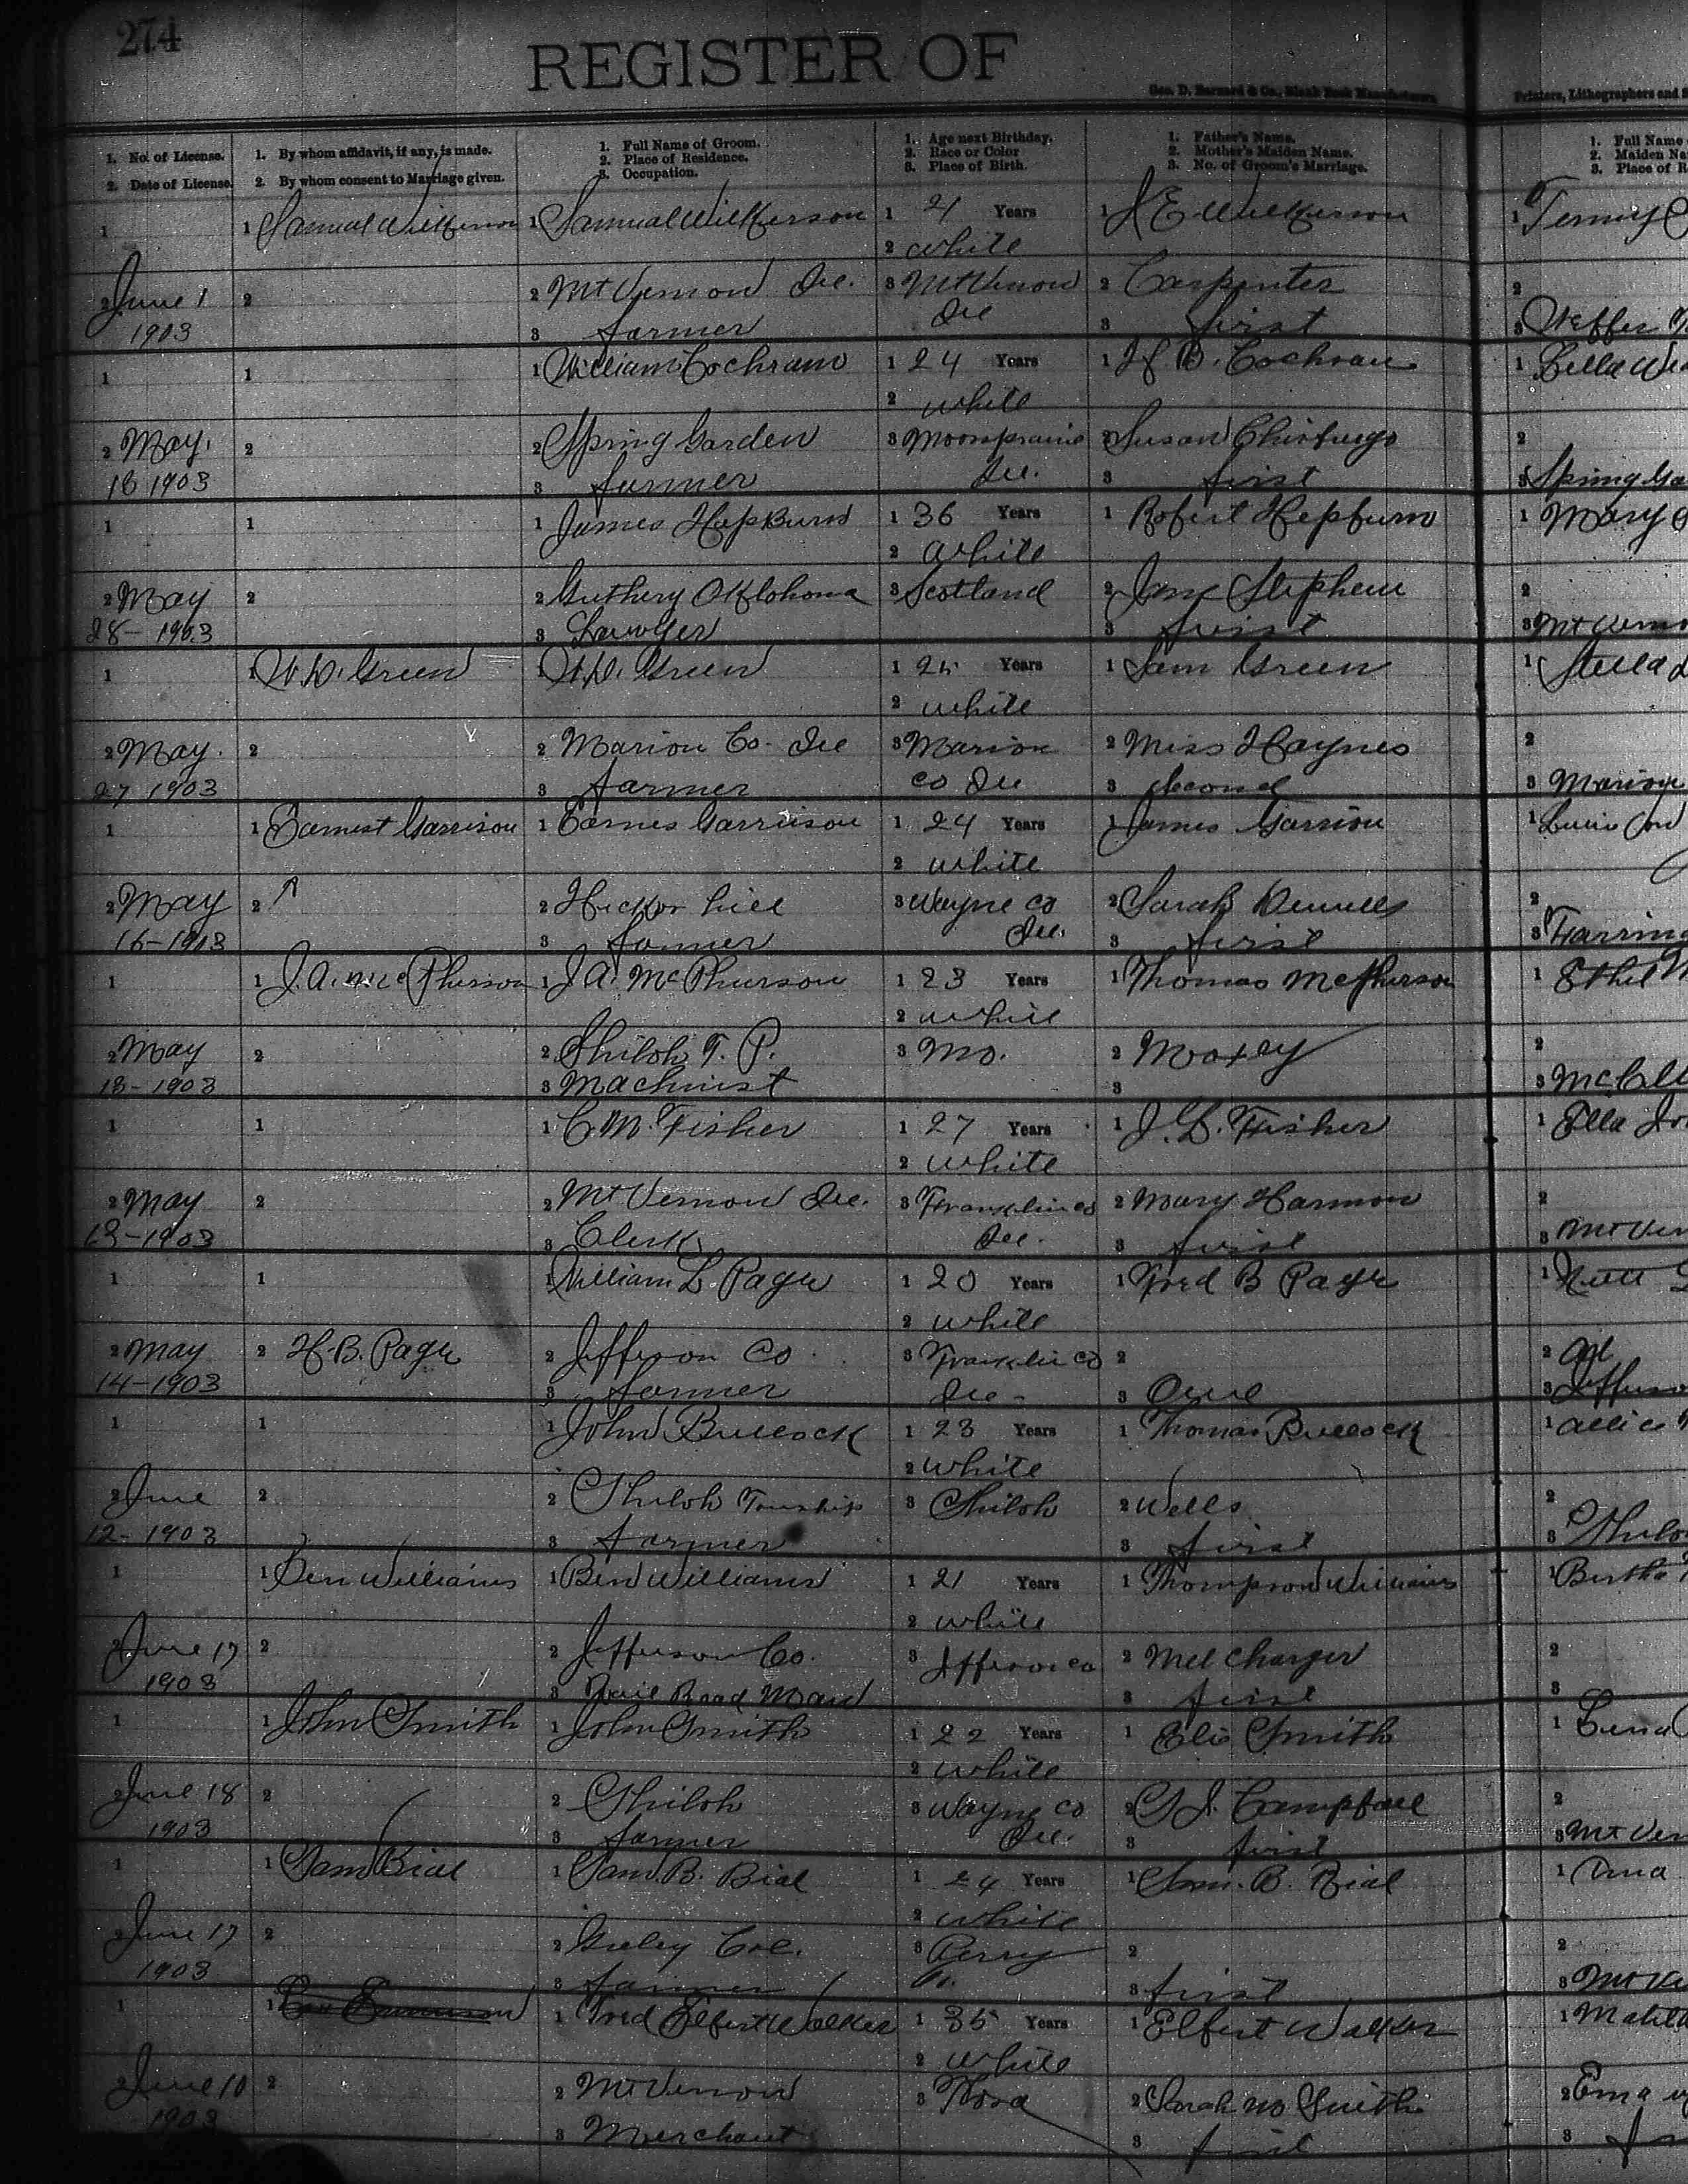 274
REGISTER OF
Geo. D. Barnard & Co., Blank Book Manufacturers
Printers, Lithographers and
1. No. of License.
2. Date of License.
1. By whom affidavit, if any, is made.
2. By whom consent to Marriage given.
1. Full Name of Groom.
2. Place of Residence.
3. Occupation.
1. Age next Birthday.
2. Race or Color
3. Place of Birth.
1. Father's Name.
2. Mother's Maiden Name.
3. No. of Groom's Marriage.
1. Full Name
2. Maiden Na
3. Place of R
1 1 Samual Wilkerson 1 Samual Wilkerson 1 21 Years 1 J E Wilkerson 1
2 white
2 June 1 2 2 Mt Vernon Ill. 3 Mt Vernon 2 Carpenter 2
1903 3 farmer Ill 3 first 3
1 1 1 William Cochrann 1 24 Years 1 H. B. Cochran 1 Lella
2 white
2 May 2 2 Spring Garden 3 Moorsprairie 2 Susan 2
18 1903 3 farmer Ill. 3 first 3 Spring Ga
1 1 1 James Hepburn 1 36 Years 1 Robert Hepburn 1 Mary
2 white
2 May 2 2 Guthery Oklohoma 3 Scotland 2 Jane Stephen 2
28- 1903 3 Lawyer 3 first 3 Mt Verno
1 1 W. D. Green 1 W. D. Green 1 25 Years 1 Sam Green 1 Stella
2 white
2 May 2 2 Marion Co. Ill 3 Marion 2 Miss Haynes 2
27 1903 3 farmer co Ill 3 second 3 Marion
1 1 Earnest Garrison 1 Earnes Garrison 1 24 Years 1 James Garrison 1
2 white
2 May 2 2 Hickor hill 3 Wayne co 2 Sarah 2
16-1903 3 farmer Ill. 3 first 3 Farring
1 1 J. A. McPherson 1 J A. McPhurson 1 23 Years 1 Thomas McPherson 1 Ethel M
2 white
2 May 2 2 Shiloh T. P. 3 Mo. 2 Moxey 2
13-1903 3 Machinist 3 3 McCll
1 1 1 C. M. Fisher 1 27 Years 1 J. L. Fisher 1 Ella
2 white
2 May 2 2 Mt Vernon Ill. 3 Franklin co 2 Mary Harmon 2
13-1903 3 Clerk Ill. 3 first 3 Mt Ver
1 1 1 William L Page 1 20 Years 1 Fred B Page 1
2 white
2 May 2 H. B. Page 2 Jefferson Co 3 Franklin co 2 2
14-1903 3 farmer Ill- 3 One 3 Jefferso
1 1 1 John Bullock 1 23 Years 1 Thomas Bullock 1 Allice
2 white
2 June 2 2 Shiloh Township 3 Shiloh 2 Wells 2
12-1903 3 farmer 3 first 3 Shilo
1 1 Ben Williams 1 Ben Williams 1 21 Years 1 Thompson Williams 1 Bertha
2 white
2 June 17 2 2 Jefferson Co. 3 Jefferson co 2 Melcharger 2
1903 3 Rail Road Man 3 first 3
1 1 John Smith 1 John Smith 1 22 Years 1 Elis Smith 1 Lena
2 white
2 June 18 2 2 Shiloh 3 Wayne co 2 Campbell 2
1903 3 farmer Ill. 3 first 3 Mt Ver
1 1 Sam Bial 1 Sam. B. Bial 1 24 Years 1 Sam. B. Bial 1
2 white
2 June 17 2 2 Greley Col. 3 Perry 2 2
1903 3 farmer Co. 3 first 3 Mt Ve
1 1 1 Fred Elbert Walker 1 35 Years 1 Elbert Walker 1 Matild
2 white
2 June 10 2 2 Mt Vernon 3 2 Sarah M Smith 2 Ema
1903 3 Merchant 3 first 3